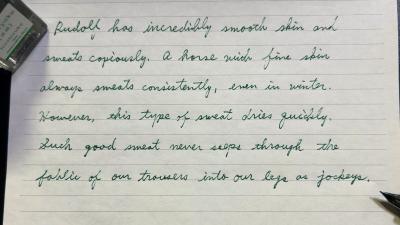 Rudolf has incredibly smooth skin and
sweats copiously. A horse with fine skin
always sweats consistently, even in winter.
However, this type of sweat dries quickly.
Such good sweat never seeps through the
fablic of our trousers into our legs as jockeys.